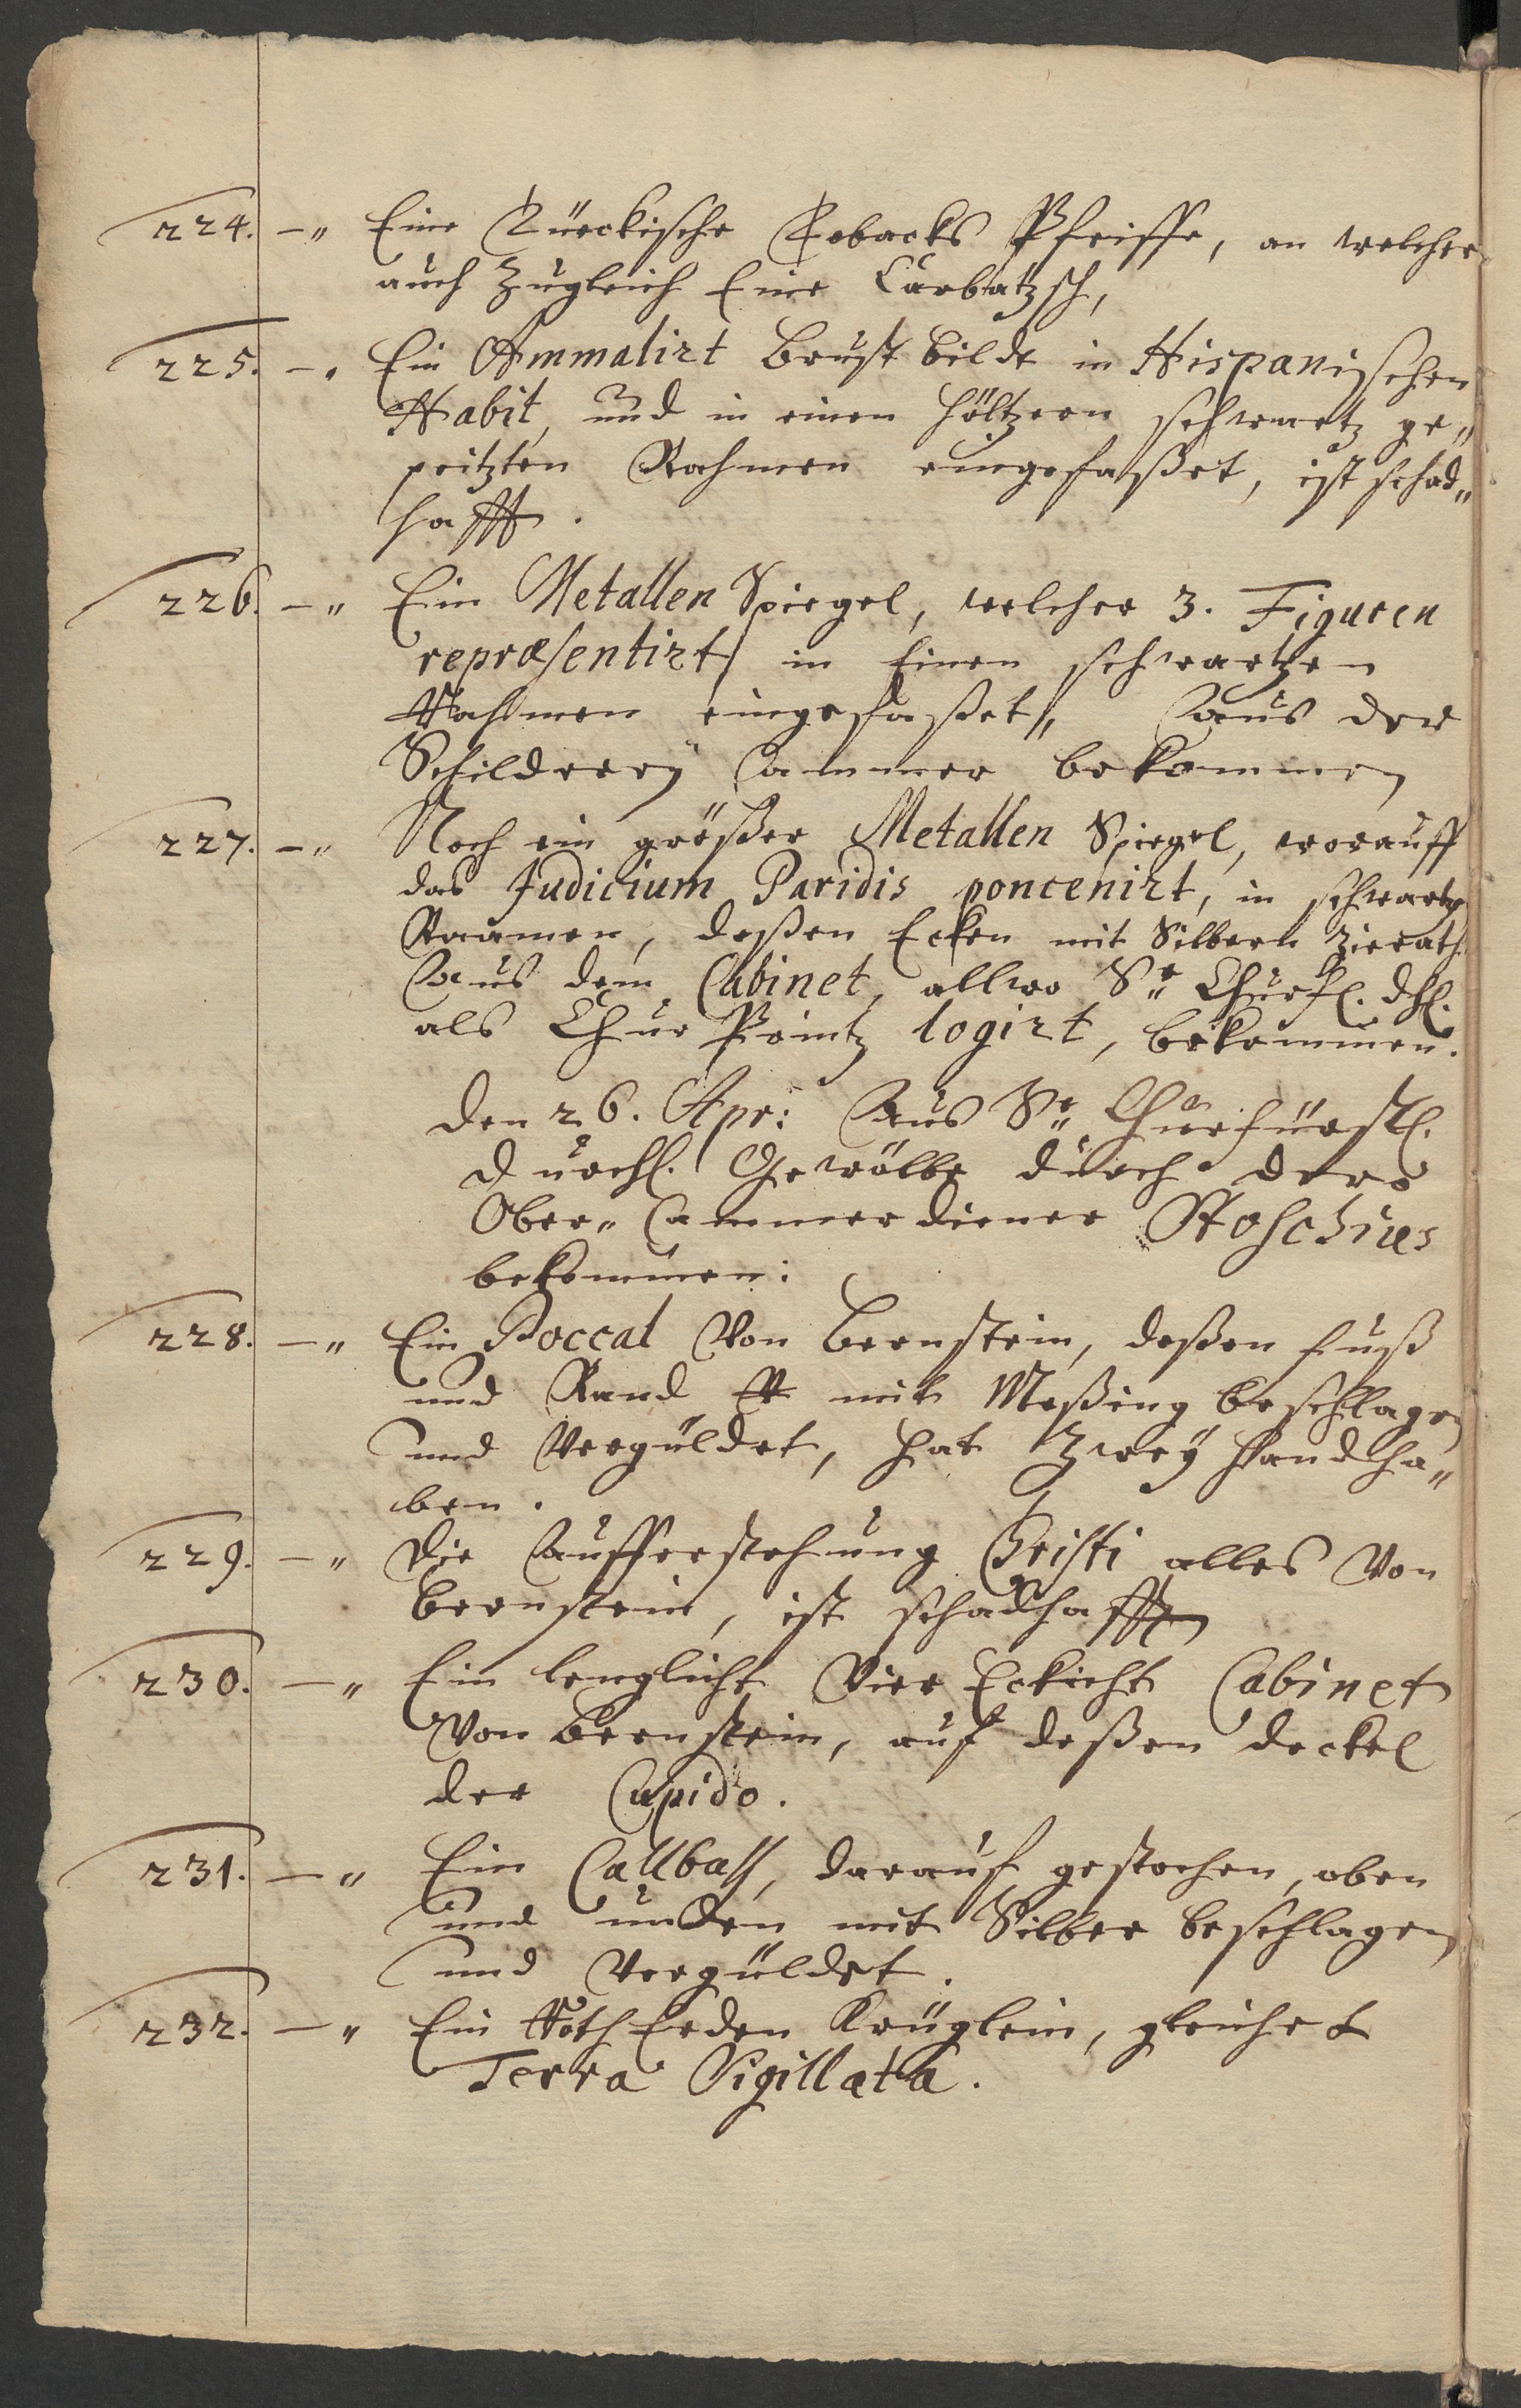 224. –„ Eine Türckische Tobacks Pfeiffe, an welcher
auch zugleich Eine Carbatzsch,
225. –„ Ein Ammalirt Brust bildt in Hispanischen
Habit, und in einen höltzern schwartz ge„
peitzten Rahmen eingefaßet, ist schad„
hafft.
226. –„ Ein Metallen Spiegel, welcher 3. Figuren
repræsentirt, in Einen schwartzen
Rahmen eingefaßet, Aus der
Schilderey Cammer bekommen
227. –„ Noch ein größer Metallen Spiegel, worauff
das Judicium Paridis poncenirt, in schwartz
Raamen, deßen Ecken mit Silbern Zierath.
Aus dem Cabinet, allwo Sr Churfl. dhl.
als Chur Printz logirt, bekommen.
Den 26. Apr: Aus Sr Churfürstl.
Durchl. Gewölbe durch dero
Ober„ Cammerdiener Stoschius
bekommen:
228. –„ Ein Poccal Von Bernstein, deßen fuß
und Rand mit Meßing beschlagen
und Vergüldet, hat Zweÿ Handha„
ben.
229. –„ Die Aufferstehung Christi alles Von
Bernstein, ist schadhafft
230. –„ Ein lenglicht Vier Eckicht Cabinet
Von Bernstein, auf deßen deckel
der Cupido.
231. –„ Ein Callbaß, darauf gestochen, oben
und unden mit Silber beschlagen
und Vergüldet.
232. –„ Ein Roth Erden Krüglein, gleichet
Terra Sigillata.